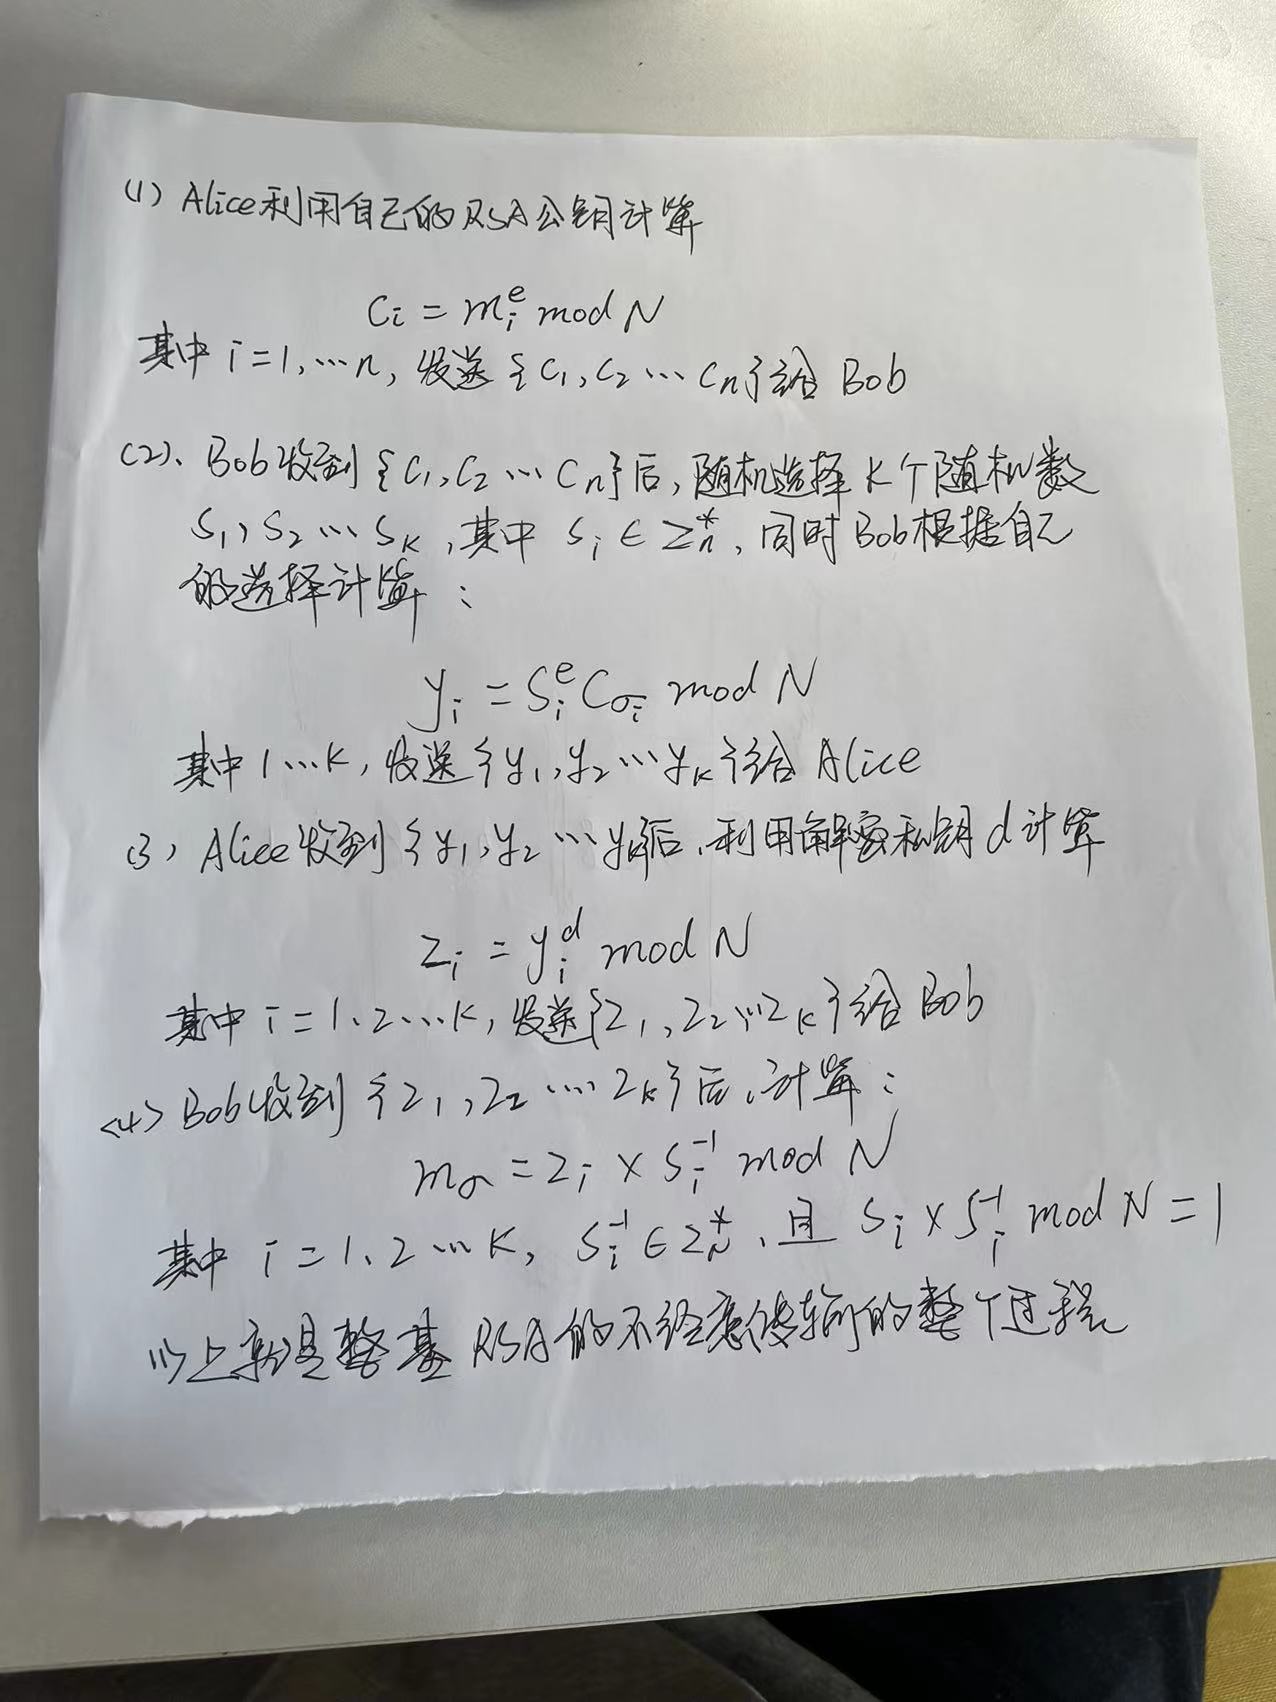 (1) Alice利用自己的RSA公钥计算
Cᵢ = mᵢᵉ mod N
其中 i=1,…n, 发送 {C₁, C₂ … Cₙ}给 Bob
(2)、Bob收到 {C₁, C₂ … Cₙ}后, 随机选择 K个随机数
S₁, S₂ … Sₖ, 其中 Sᵢ ∈ Zₙ*, 同时Bob根据自己
的选择计算:
yᵢ = Sᵢᵉ C_{σᵢ} mod N
其中 1…K, 发送 {y₁, y₂ … yₖ}给 Alice
(3) Alice收到 {y₁, y₂ … yₖ}后, 利用解密私钥 d 计算
Zᵢ = yᵢᵈ mod N
其中 i=1、2…K, 发送{Z₁, Z₂ … Zₖ}给 Bob
(4) Bob收到 {Z₁, Z₂ … Zₖ}后, 计算:
m_σ = Zᵢ × Sᵢ⁻¹ mod N
其中 i=1、2…K, Sᵢ⁻¹ ∈ Z_N*, 且 Sᵢ × Sᵢ⁻¹ mod N = 1
以上就是整基RSA的不经意传输的整个过程